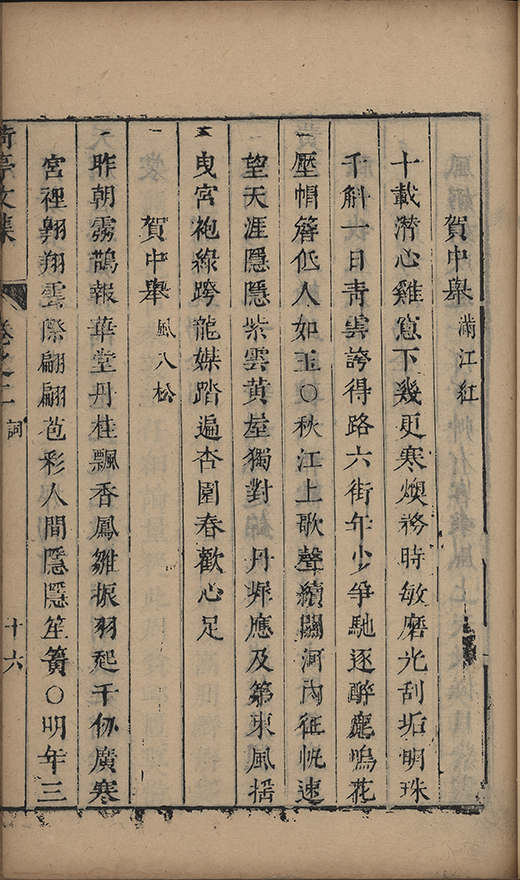 賀中舉 滿江紅
十載潛心雞窓下幾更寒燠務時敏磨光刮垢明珠
千斛一日靑雲誇得路六街年少爭馳逐醉鹿鳴花
壓帽簷低人如玉〇秋江上歌聲續關河內征帆速
望天涯隱隱紫雲黃屋獨對丹墀應及第東風搖
曳宮袍綠跨龍媒踏遍杏園春歡心足
賀中舉 風入松
昨朝靈鵲報華堂丹桂飄香鳳雛振羽起千仞廣寒
宮裡翱翔雲際翩翩苞彩人間隱隱笙簧〇明年三
亭文集 卷之二 詞 十六